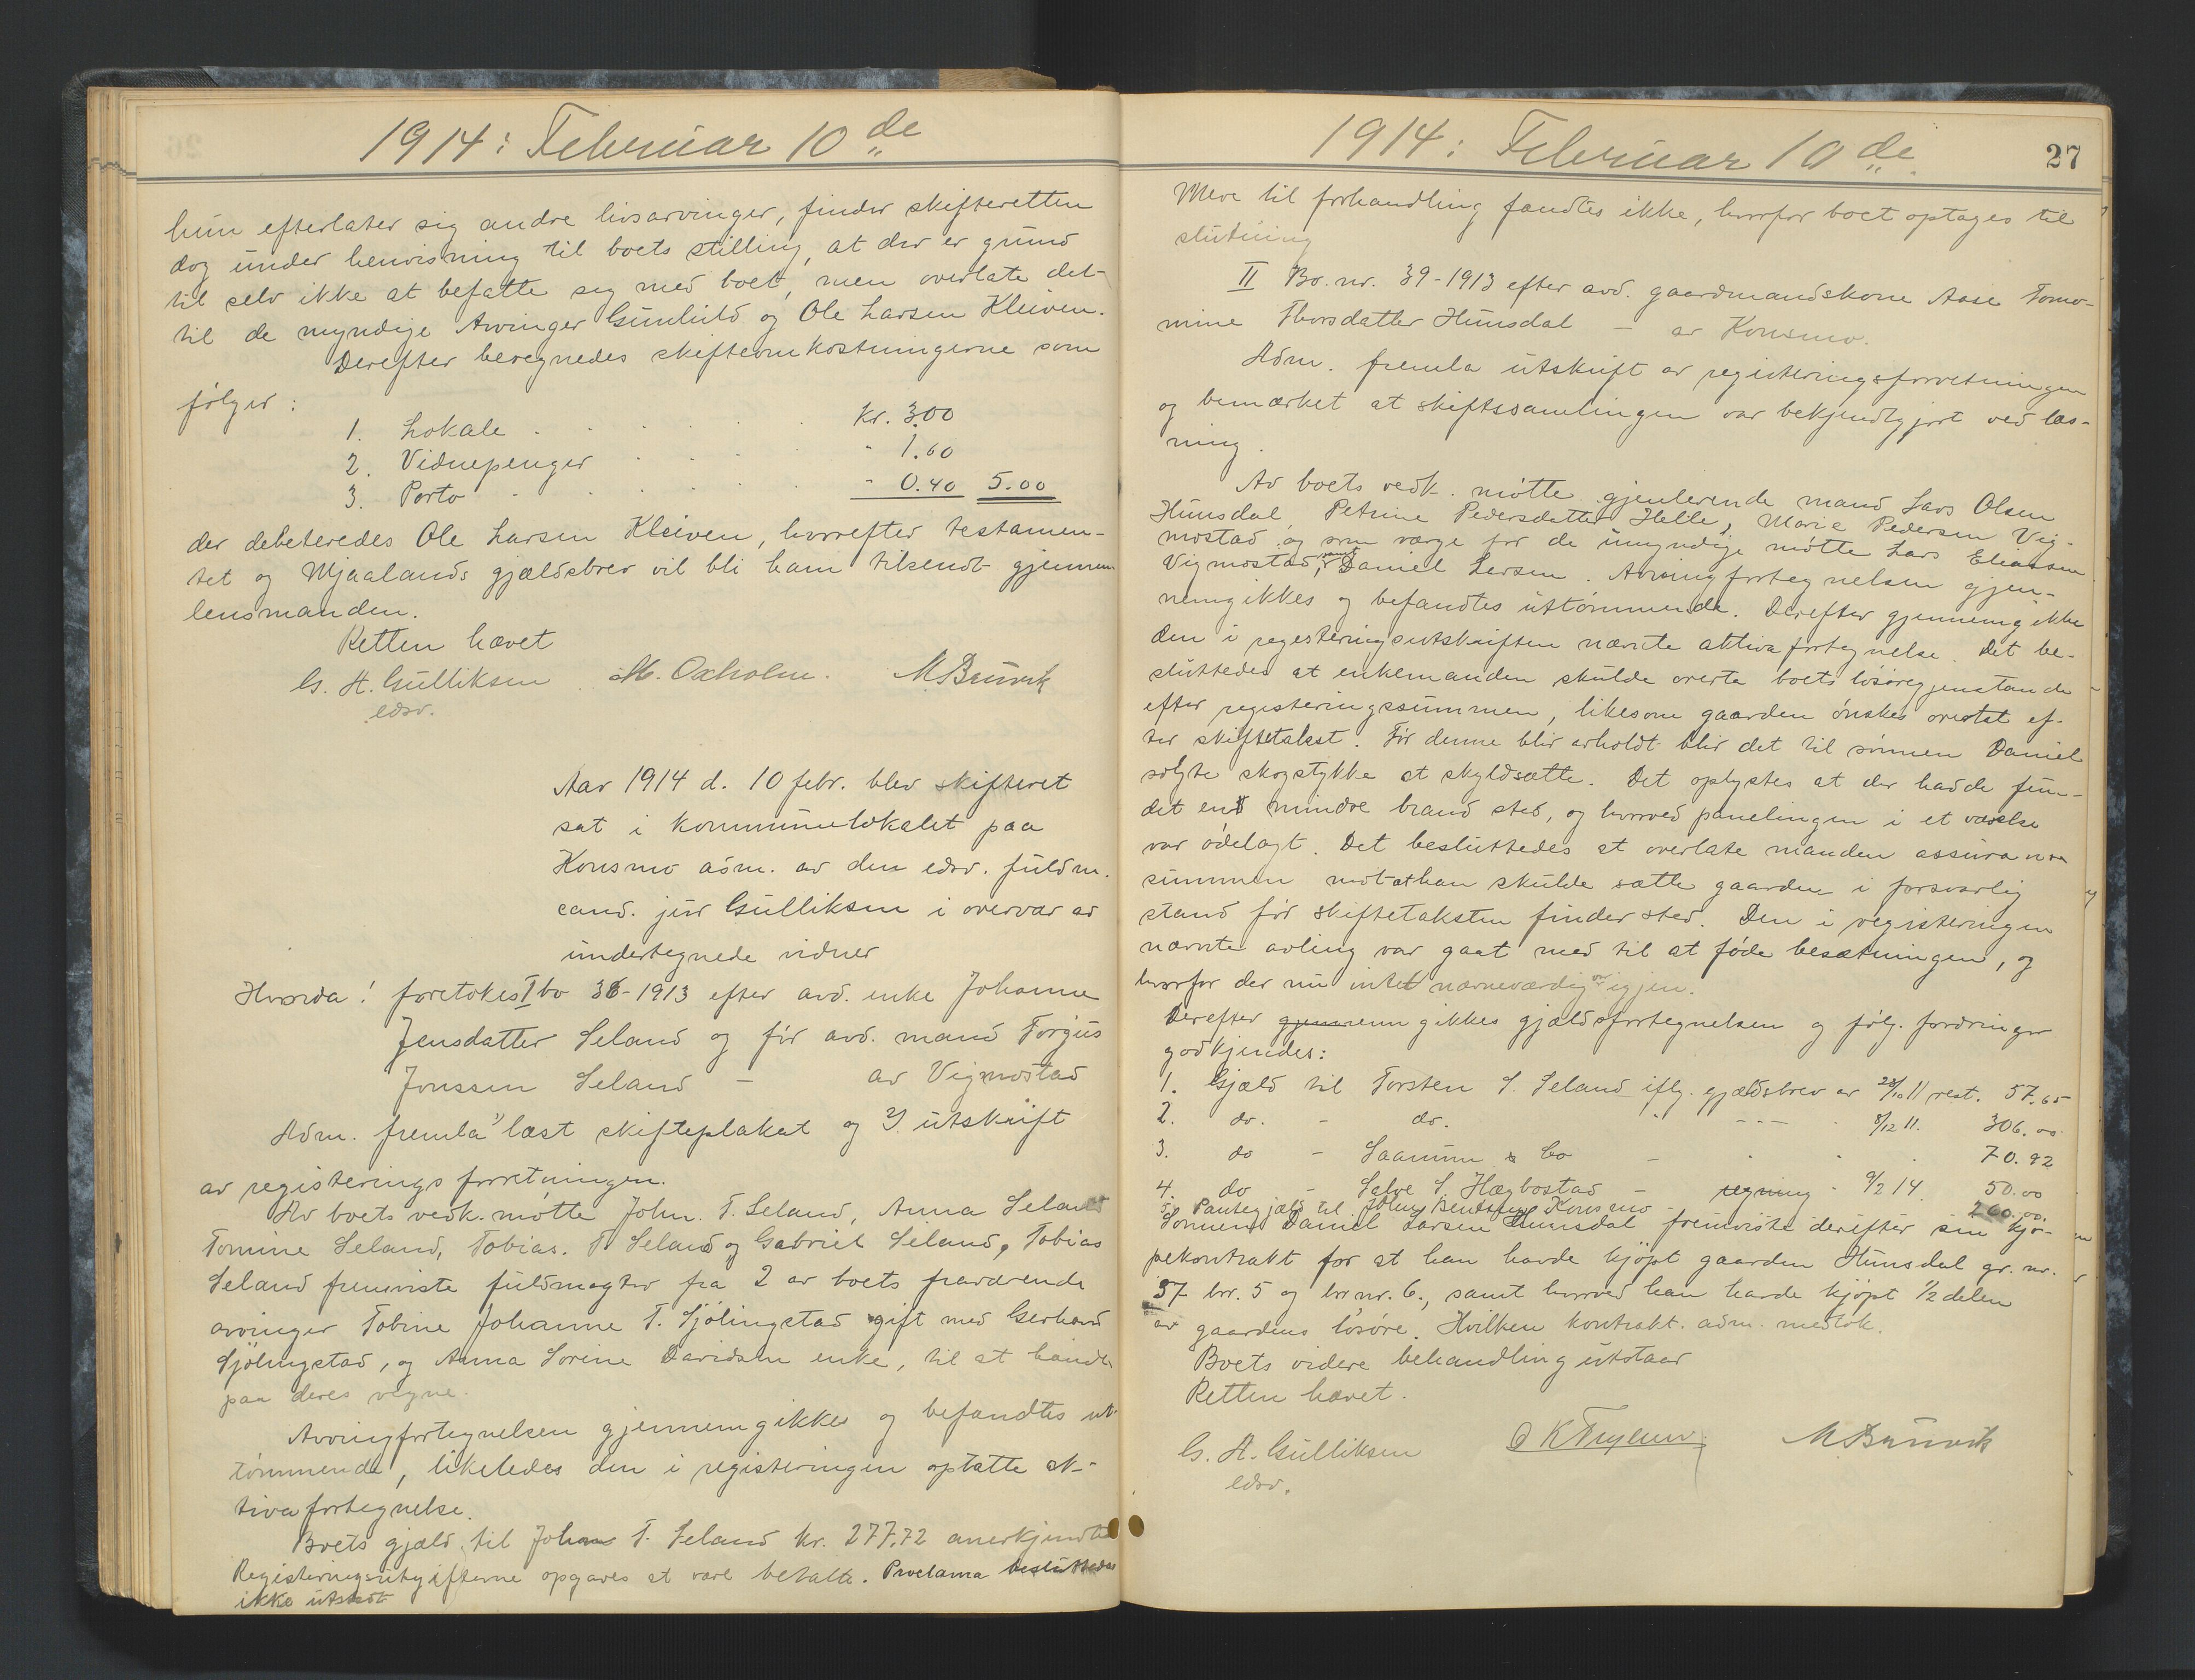 1914: Februar 10de
hun efterlater sig andre livsarvinger, finder skifteretten
dog under henvisning til boets stilling, at der er grund
til selv ikke at befatte seg med boet, men overlate det
til de myndige Arvinger Gunhild og Ole Larsen Kleiven.
Derefter beregnedes skifteomkostningerne som
følger:
1. Lokale . . . . . Kr. 3.00
2. Vidnepenger . . . . " 1.60
3. Porto . . . . . " 0.40 5.00
der debeteredes Ole Larsen Kleiven, hvorefter testamen-
tet og Mjaalands gjældsbrev vil bli ham tilsendt gjennem
lensmanden.
Retten hævet
G. H. Gulliksen M. Oxholm. M Bruvik
edsv.
Aar 1914 d. 10 febr. blev skifteret
sat i kommunelokalet paa
Konsmo adm. av den edsv. fuldm.
cand. jur Gulliksen i overvær av
undertegnede vidner
Hvorda! foretokes I bo 36-1913 efter avd. enke Johanne
Jensdatter Seland og før avd. mand Torgus
Jonssen Seland – av Vigmostad
Adm. fremla 1) læst skifteplakat og 2) utskrift
av registerings forretningen.
Av boets vedk. møtte John. T. Seland, Anna Seland
Tomine Seland, Tobias. T. Seland og Gabriel Seland, Tobias
Seland fremviste fuldmagter fra 2 av boets fraværende
arvinger Tobine Johanne T. Sjölingstad gift med Gerhard
Sjölingstad, og Anna Sorine Davidsen enke, til at handle
paa deres vegne.
Arvingfortegnelsen gjennemgikkes og befandtes ut-
tømmende, likeledes den i registeringen optatte ak-
tivafortegnelse.
Boets gjæld til Johan T. Seland kr. 277.72 anerkjendtes
Registeringsutgifterne opgaves at være betalte. Proclama besluttedes
ikke utstedt
1914: Februar 10de.
27
Mere til forhandling fandtes ikke, hvorfor boet optages til
slutning
II Bo. nr. 39-1913 efter avd. gaardmandskone Aase Tomo-
mine Thorsdatter Hunsdal – av Konsmo.
Adm. fremla utskrift av registeringsforretningen
og bemærket at skiftssamlingen var bekjendtgjort ved læs-
ning.
Av boets vedk. møtte gjenlevende mand Lars Olsen
Hunsdal, Petrine Pedersdatter Helle, Marie Pedersen Vig-
mostad og som værge for de umyndige møtte Lars Eliassen
Vigmostad, samt Daniel Larsen. Arvingfortegnelsen gjen-
nemgikkes og befandtes uttømmende. Derefter gjennemgikkes
den i registeringsutskriften nævnte aktivafortegnelse. Det be-
sluttedes at enkemanden skulde overta boets løsøregjenstande
efter registeringssummen, likesom gaarden ønskes overtat ef-
ter skiftetakst. Før denne blir avholdt blir det til sønnen Daniel
solgte skogstykke at skyldsætte. Det oplystes at der hadde fun-
det en mindre brand sted, og hvorved panelingen i et værelse
var ødelagt. Det besluttedes at overlate manden assurance
summen mot at han skulde sætte gaarden i forsvarlig
stand før skiftetaksten finder sted. Den i registeringen
nævnte avling var gaat med til at føde besætningen, og
hvorfor der nu intet nævneværdig var igjen.
Derefter gjennemgikkes gjældsfortegnelsen og følg. fordringer
godkjendes:
1. Gjæld til Torsten S. Seland iflg. gjældsbrev av 28/10 11 rest. 57.65
2. do. – do. " – – – 8/12 11. 306.00
3. do – Saanum & Co – " " . 70.92
4. do – Salve S. Hægbostad – regning - 9/2 14. 50.00
5. Pantegjæld til Johny Bentsen Konsmo 200.00.
Sønnen Daniel Larsen Hunsdal fremviste derefter sin kjø-
pekontrakt for at han havde kjøpt gaarden Hunsdal gr. nr.
57 br. 5 og brnr. 6., samt hvorved han havde kjøpt 1/2 delen
av gaardens løsøre. Hvilken kontrakt adm. medtok.
Boets videre behandling utstaar
Retten hævet.
G. H. Gulliksen M Bruvik
edsv.